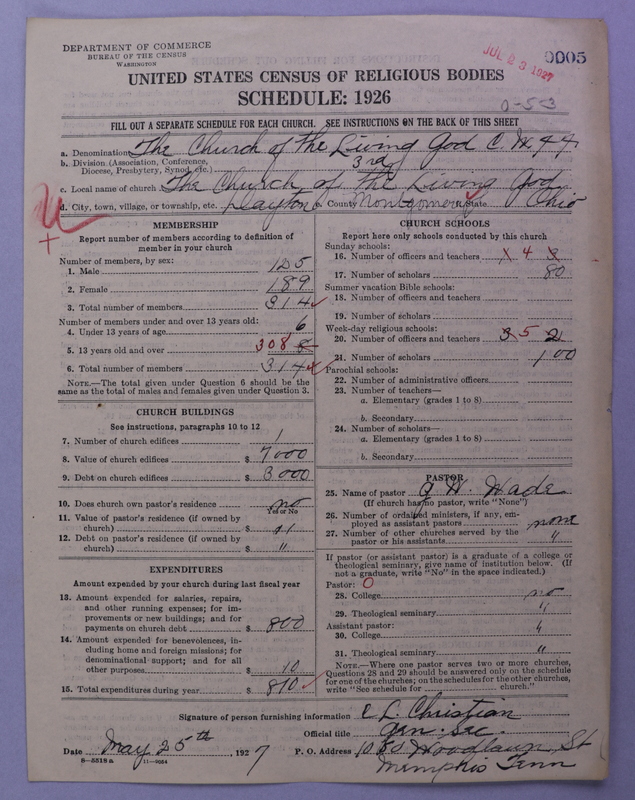 DEPARTMENT OF COMMERCE
BUREAU OF THE CENSUS
WASHINGTON
JUL 23 1927
0005
UNITED STATES CENSUS OF RELIGIOUS BODIES
SCHEDULE: 1926
0-53
FILL OUT A SEPARATE SCHEDULE FOR EACH CHURCH. SEE INSTRUCTIONS ON THE BACK OF THIS SHEET
a. Denomination The Church of the Living God C. W. F. F.
b. Division (Association, Conference, Diocese, Presbytery, Synod, etc.) 3rd
c. Local name of church The Church of the Living God
d. City, town, village, or township, etc. Dayton County Montgomery State Ohio
MEMBERSHIP
Report number of members according to definition of
member in your church
Number of members, by sex:
1. Male 125
2. Female 189
3. Total number of members 314
Number of members under and over 13 years old:
4. Under 13 years of age 6
5. 13 years old and over 308 8
6. Total number of members 314
NOTE.—The total given under Question 6 should be the
same as the total of males and females given under Question 3.
CHURCH BUILDINGS
See instructions, paragraphs 10 to 12
7. Number of church edifices 1
8. Value of church edifices $ 7000
9. Debt on church edifices $ 3000
10. Does church own pastor's residence no
Yes or No
11. Value of pastor's residence (if owned by
church) $ "
12. Debt on pastor's residence (if owned by
church) $ "
EXPENDITURES
Amount expended by your church during last fiscal year
13. Amount expended for salaries, repairs,
and other running expenses; for im-
provements or new buildings; and for
payments on church debt $ 800
14. Amount expended for benevolences, in-
cluding home and foreign missions; for
denominational support; and for all
other purposes $ 10
15. Total expenditures during year $ 810
CHURCH SCHOOLS
Report here only schools conducted by this church
Sunday schools:
16. Number of officers and teachers 4 3
17. Number of scholars 80
Summer vacation Bible schools:
18. Number of officers and teachers
19. Number of scholars
Week-day religious schools:
20. Number of officers and teachers 3 5 2
21. Number of scholars 100
Parochial schools:
22. Number of administrative officers
23. Number of teachers—
a. Elementary (grades 1 to 8)
b. Secondary
24. Number of scholars—
a. Elementary (grades 1 to 8)
b. Secondary
PASTOR
25. Name of pastor W. Wade
(If church has no pastor, write "None")
26. Number of ordained ministers, if any, em-
ployed as assistant pastors none
27. Number of other churches served by the
pastor or his assistants "
If pastor (or assistant pastor) is a graduate of a college or
theological seminary, give name of institution below. (If
not a graduate, write "No" in the space indicated.)
Pastor: 0
28. College no
29. Theological seminary "
Assistant pastor:
30. College "
31. Theological seminary "
NOTE.—Where one pastor serves two or more churches,
Questions 28 and 29 should be answered only on the schedule
for one of the churches; on the schedules for the other churches,
write "See schedule for church."
Signature of person furnishing information C L. Christian
Official title Gen. Sec.
Date May 25th 1927 P. O. Address Woodlawn St
Memphis Tenn
8—5518a 11—9054